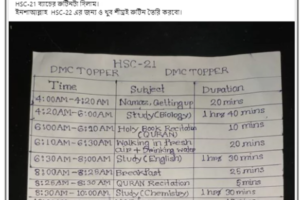 HSC-21 ব্যাচের রুটিনটা দিলাম।
ইনশাআল্লাহ HSC-22 এর জন্য ও খুব শীঘ্রই রুটিন তৈরি করবো।
HSC-21
DMC TOPPER DMC TOPPER
Time Subject Duration
4:00AM-4:20AM Namaz, Getting up 20 mins
4:20AM-6:00AM Study (Biology) 1 hr 40 mins
6:00AM-6:10AM Holy Book Recitation (QURAN) 10 mins
6:10AM-6:30AM Walking in Fresh air + Drinking water 20 mins
6:30AM-8:00AM Study (English) 1 hr 30 mins
8:00AM-8:25AM Breakfast 25 mins
8:25AM-8:30AM QURAN Recitation 5 mins
8:30AM-10:00AM Study (Chemistry) 1 hr 30 mins